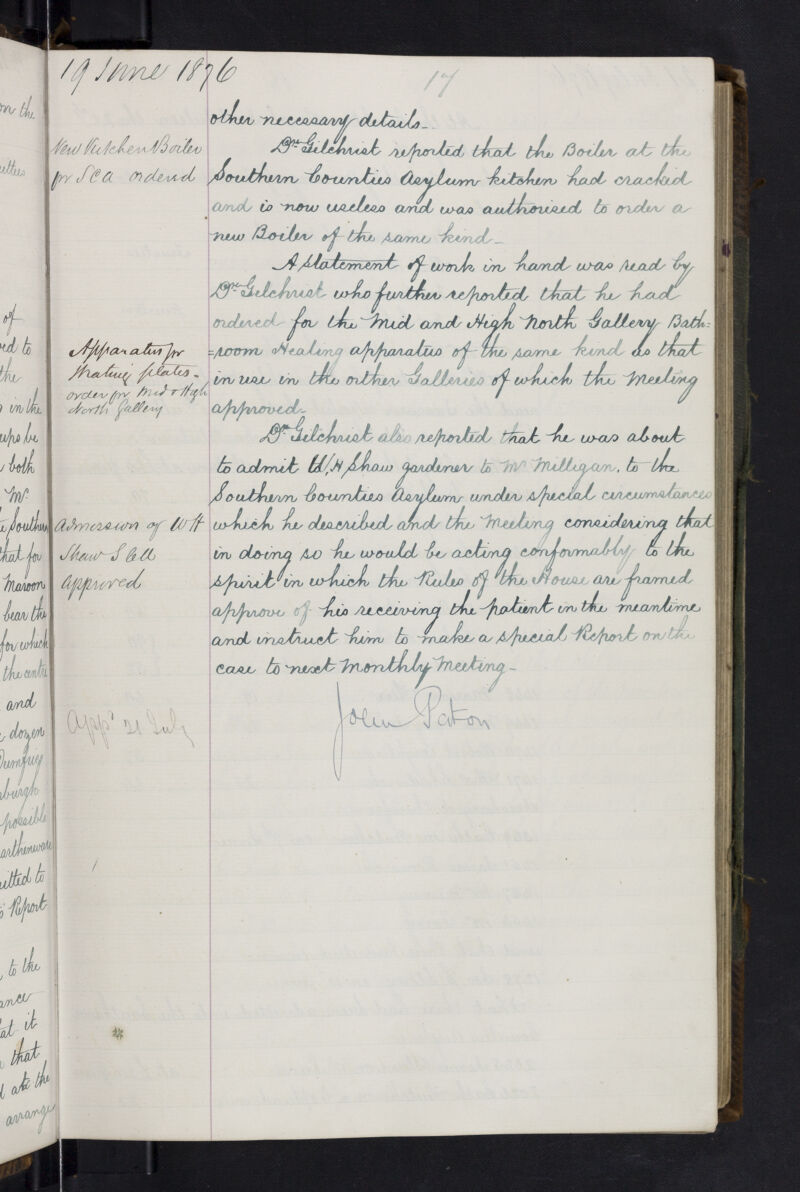 19 June 1876
17
other necessary details_
New Kitchen Boiler
for SCA ordered
Dr. Gilchrist reported that the Boiler at the
Southern Counties Asylum kitchen had cracked
and is now useless and was authorised to order a
new Boiler of the same kind_
A statement of work in hand was read by
Dr. Gilchrist who further reported that he had
ordered for the Mid and High North Gallery Bath=
Apparatus for
Heating plates_
order for Mid & High
North Gallery
=room Heating apparatus of the same kind as that
in use in the orther Galleries of which the Meeting
approved_
Dr. Gilchrist also reported that he was about
to admit W. H Shaw gardener to Mr Milligan, to the
Southern Counties Asylum under special circumstances
Admission of W H
Shaw
Approved
which he described and the Meeting considering that
in doing so he would be acting conformably to the
spirit in which the Rules of the House are framed
approve of his receiving the patient in the meantime
and instruct him to make a special Report on the
case to next Monthly Meeting_
John Paton
Appd 21 July
on the
of
the
in the
both
Mr
that for
Maroon
bear the
for which
the centre
and
dozen
possible
Report
to the
at it
that
the
arrange